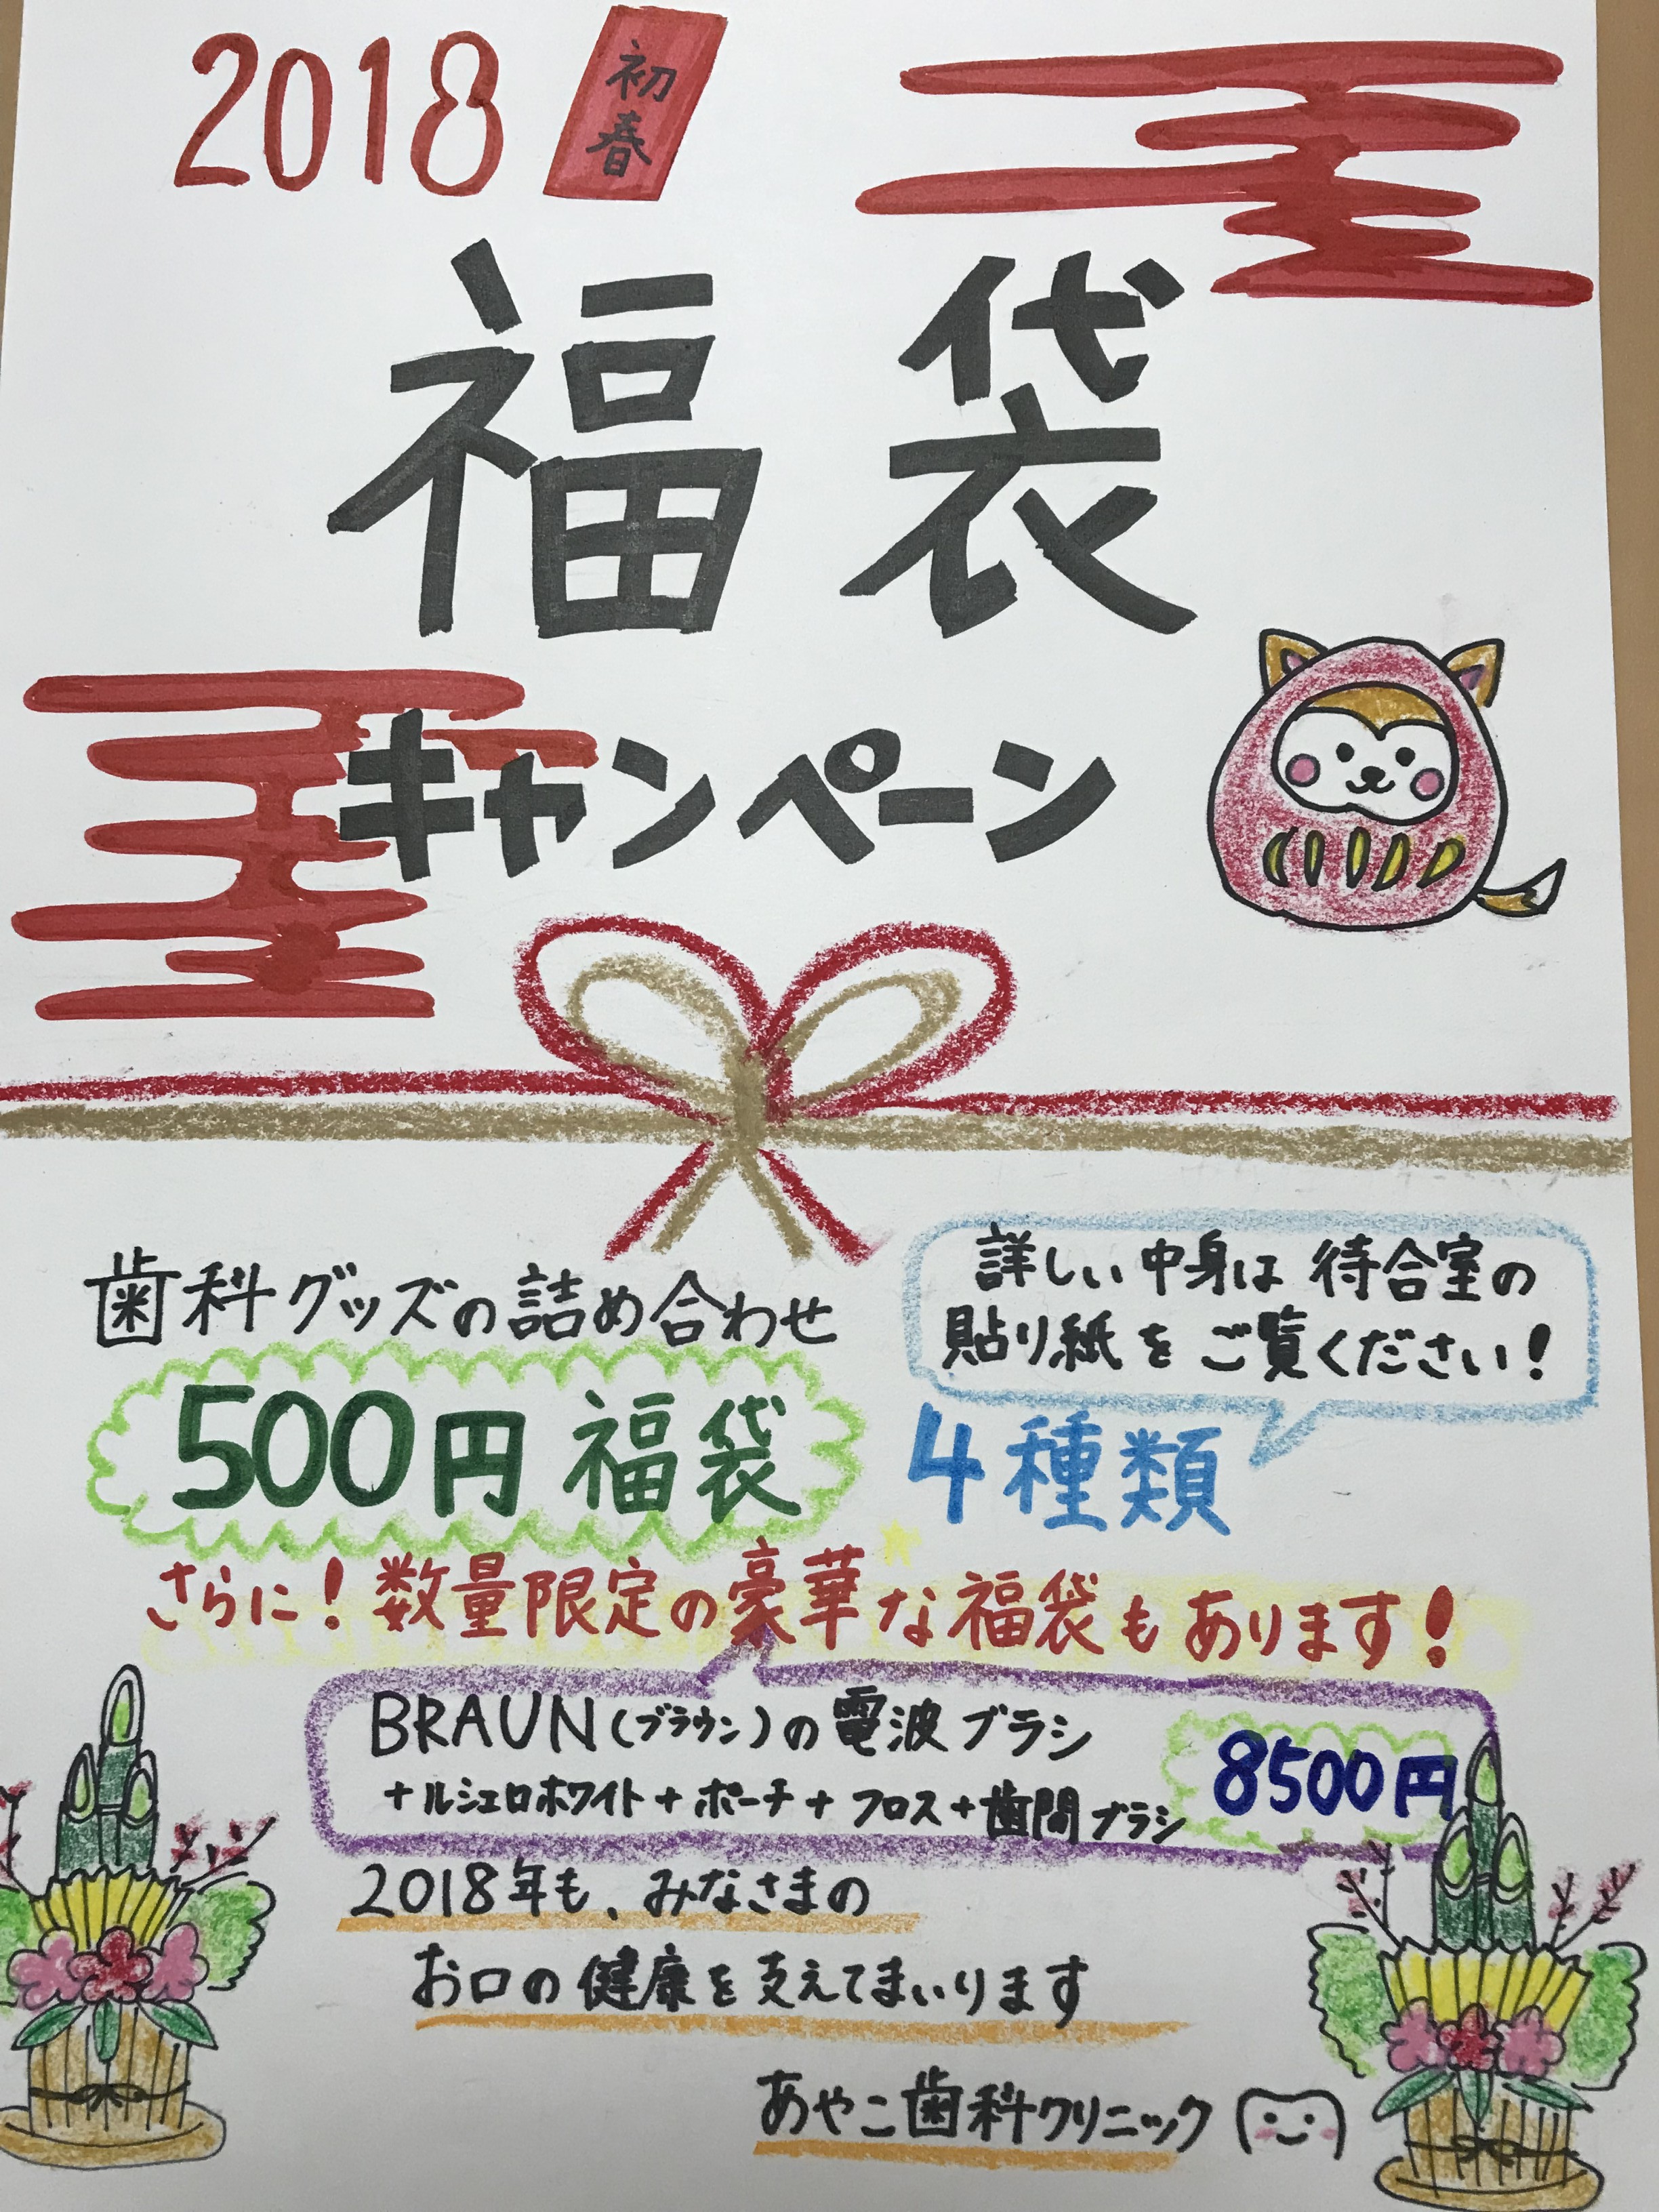 2018 初春
福袋
キャンペーン
歯科グッズの詰め合わせ
詳しい中身は待合室の
貼り紙をご覧ください!
500円福袋 4種類
さらに!数量限定の豪華な福袋もあります!
BRAUN(ブラウン)の電波ブラシ
+ルシェロホワイト+ポーチ+フロス+歯間ブラシ
8500円
2018年も、みなさまの
お口の健康を支えてまいります
あやこ歯科クリニック